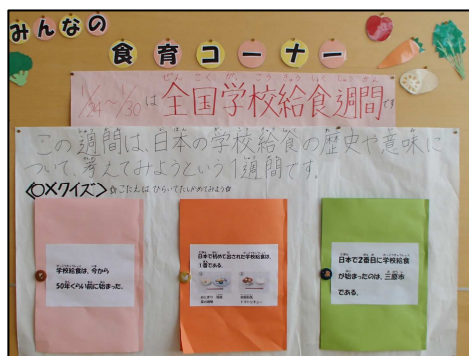 みんなの
食育コーナー
1/24～1/30は全国学校給食週間です
この週間は、日本の学校給食の歴史や意味に
ついて、考えてみようという1週間です。
<○×クイズ> ☆こたえは ひらいてたしかめてみよう☆
学校給食は、今から
50年くらい前に始まった。
日本で初めて出された学校給食は、
1番である。
日本で2番目に学校給食
が始まったのは、三原市
である。